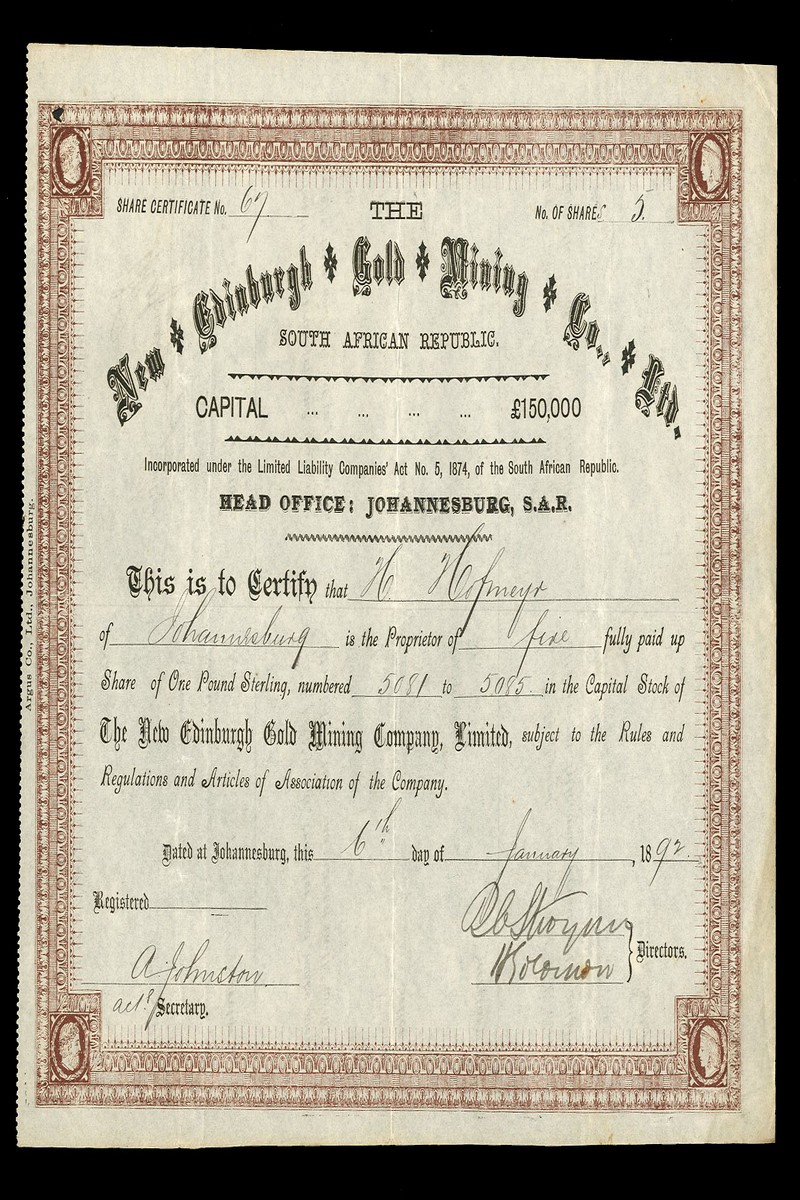 SHARE CERTIFICATE No. 67
THE
No. OF SHARES 5.
New Edinburgh Gold Mining Co., Ltd.
SOUTH AFRICAN REPUBLIC.
CAPITAL ... ... ... ... £150,000
Incorporated under the Limited Liability Companies' Act No. 5, 1874, of the South African Republic.
HEAD OFFICE: JOHANNESBURG, S.A.R.
This is to Certify that H. Hofmeyr
of Johannesburg is the Proprietor of five fully paid up
Share of One Pound Sterling, numbered 5081 to 5085. in the Capital Stock of
The New Edinburgh Gold Mining Company, Limited, subject to the Rules and
Regulations and Articles of Association of the Company.
Dated at Johannesburg, this 6th day of January, 1892.
Registered
Directors.
Solomon
A. Johnston
actg Secretary.
Argus Co., Ltd., Johannesburg.